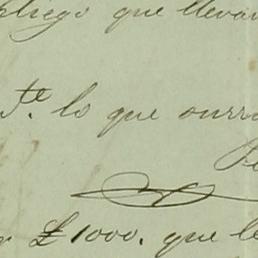 pliego que llevar
T.e lo que ourri
£ 1000. que le